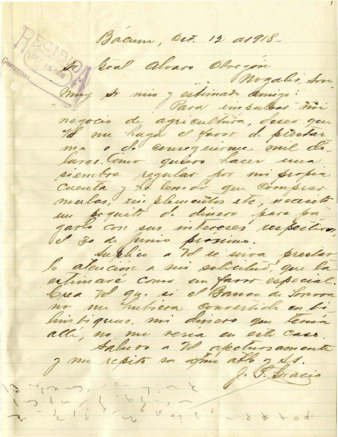 Bácum, Oct. 12 de 1918.
RECIBIDA
Sr Gral Alvaro Obregón
Nogales, Son.
Muy Sr mio y estimado amigo:
Para impulsar mi
negocio de agricultura, deseo que
Ud me haga el favor d prestar
me o de conseguirme mil do
lares. Como quiero hacer una
siembra regular por mi propia
cuenta y he tenido que comprar
mulas, implementos etc, necesito
un poquito de dinero para pa
garlo con sus intereses respectivos
el 30 de Junio proximo.
Suplico a Ud se sirva prestar
la atención a mi solicitud, que la
estimaré como un favor especial.
Crea Ud que si el Banco de Sonora
no me hubiera convertido en bi
limbiques, mi dinero que tenia
allí, no me veria en este caso.
Saludo a Ud afectuosamente
y me repito su afmo atto y S.S.
J. P. Gracia